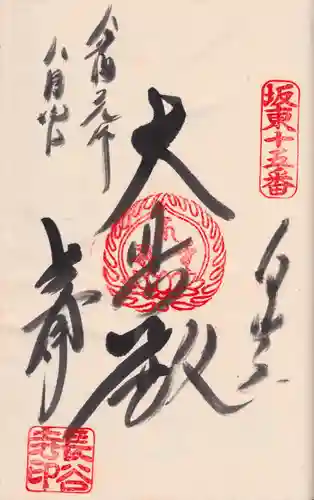 坂東十五番
白岩
大悲殿
令和元年
八月
長谷
寺印